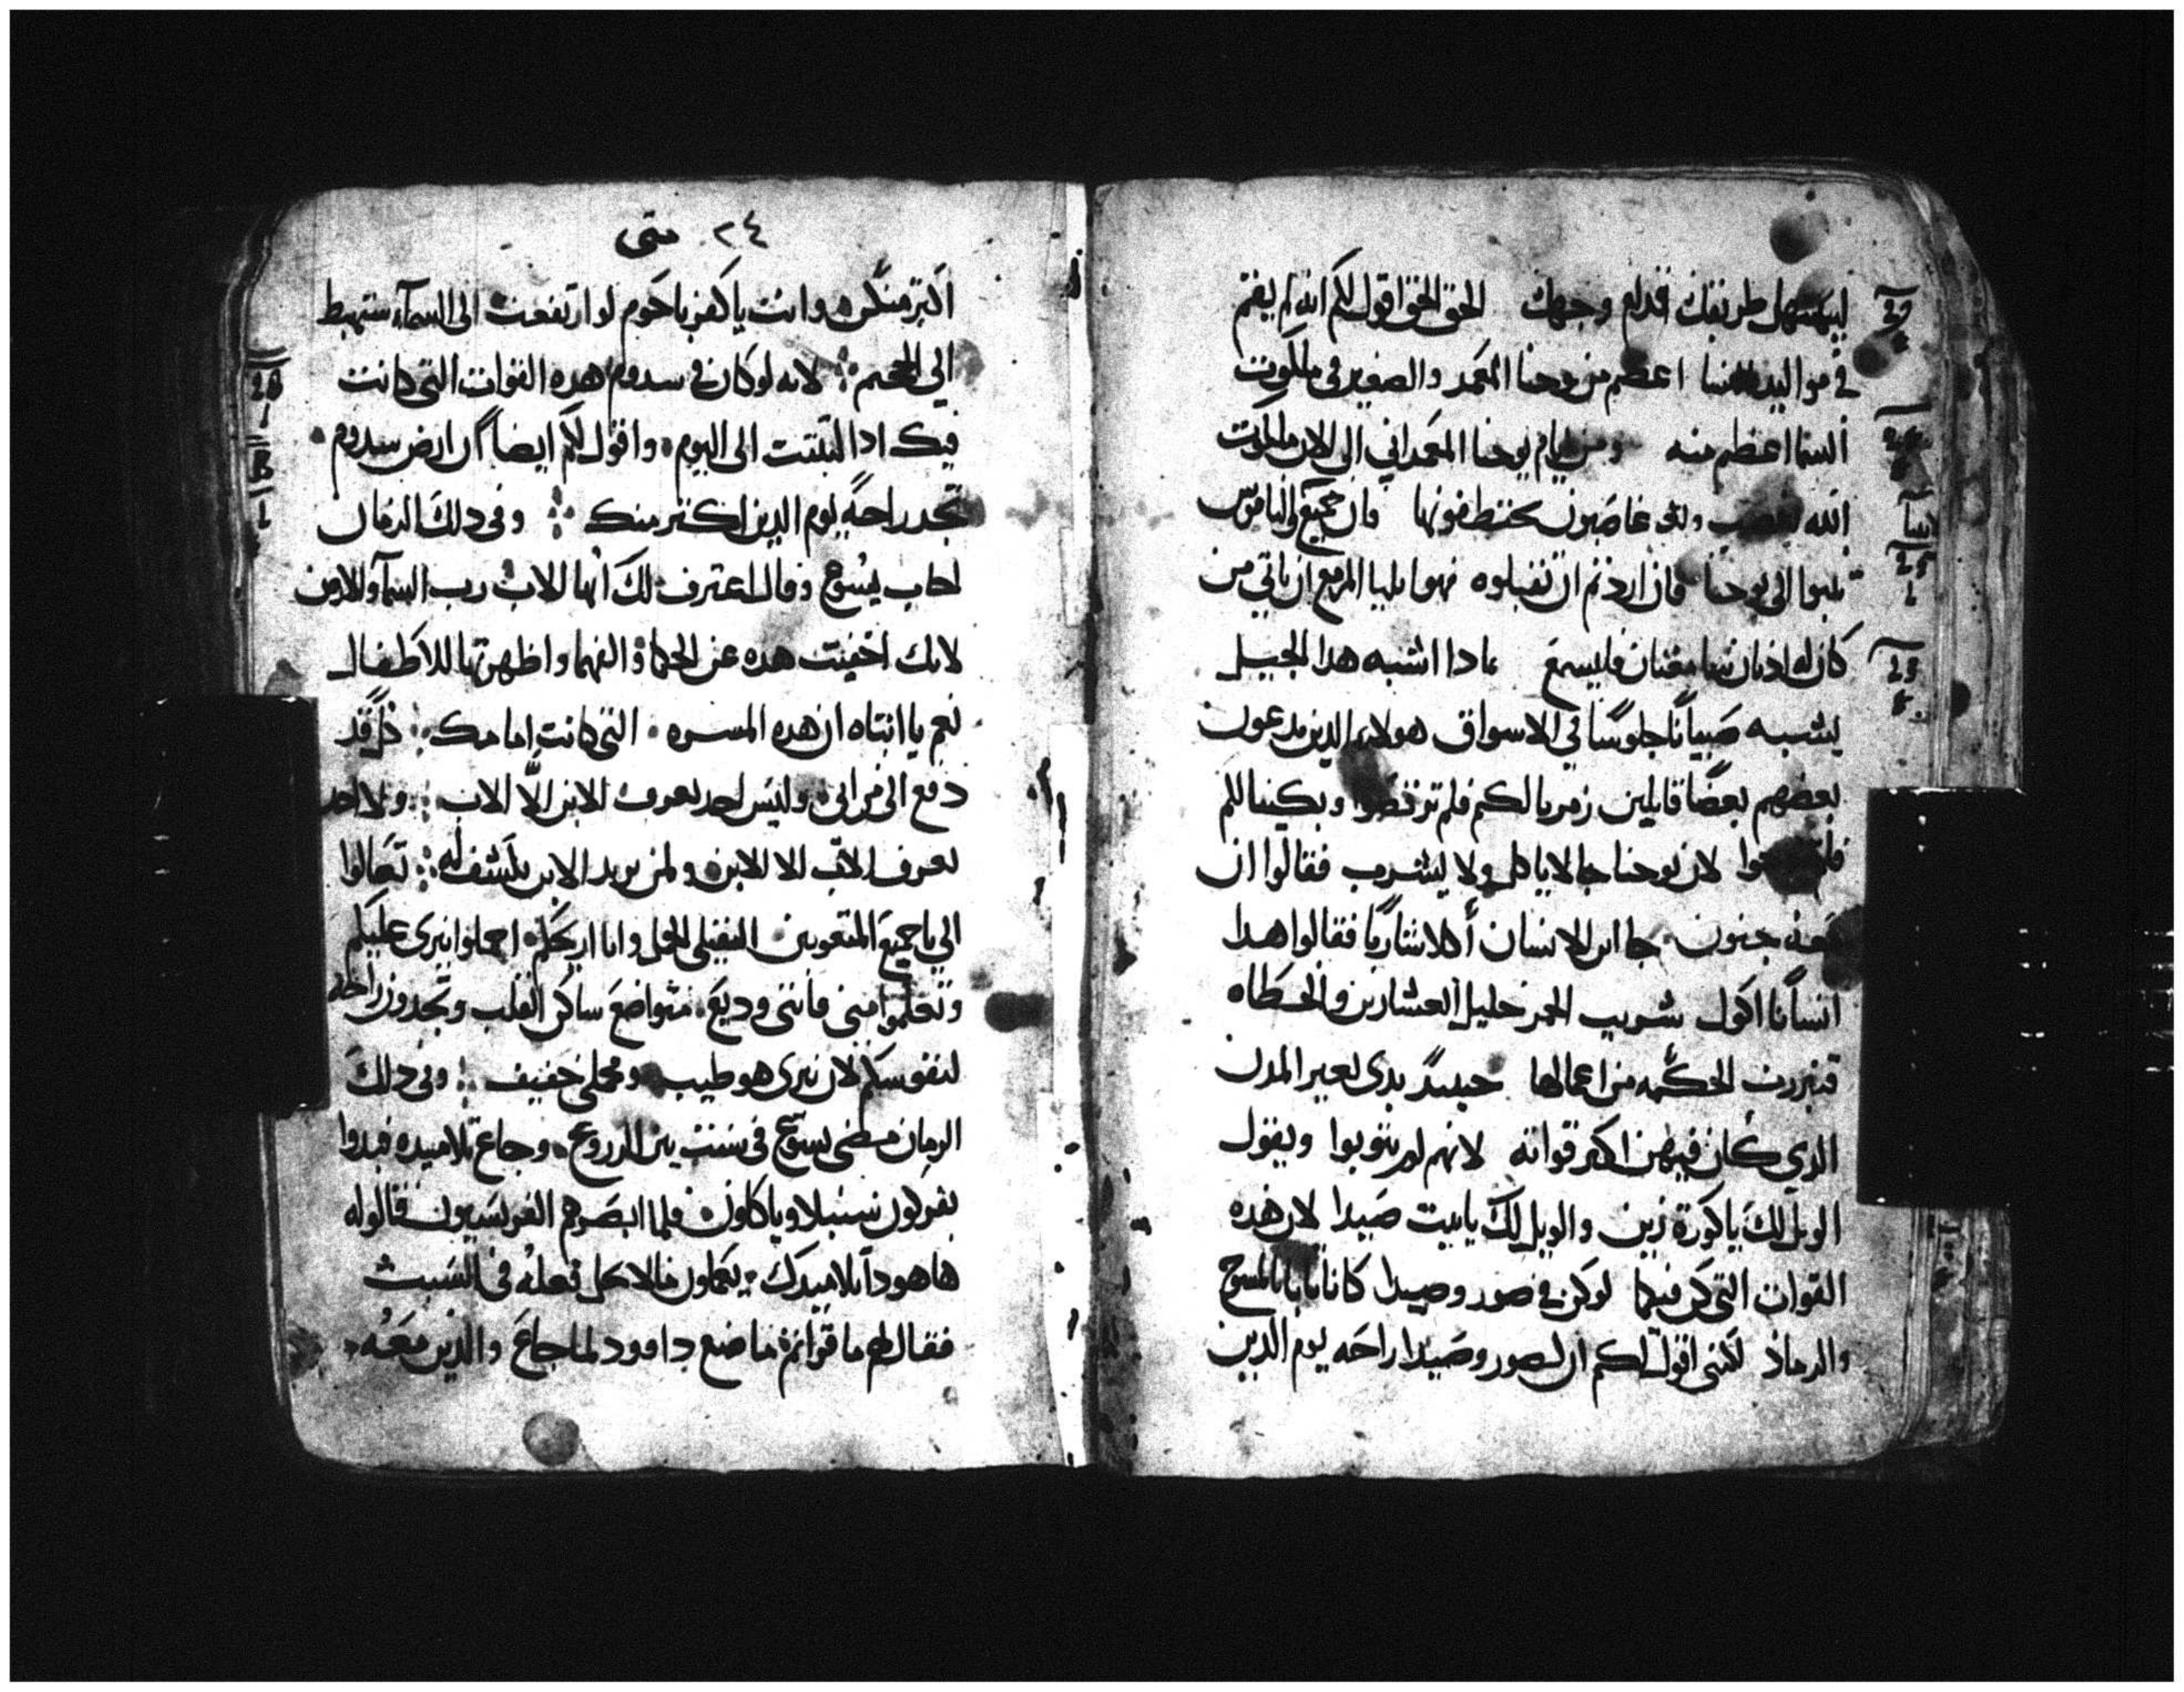 ليسهل طريقك قدام وجهك الحق الحق اقول لكم انه لم يقم
في مواليد النسا اعظم من يوحنا المعمد والصغير في ملكوت
السما اعظم منه ومن ايام يوحنا المعمداني الى الان ملكوت
الله غاصبون يختطفونها فان جميع الناموس
تنبوا الى يوحنا فان اردتم ان تقبلوه فهو ايليا المزمع ان ياتي من
كان له اذنان سامعتان فليسمع بمادا اشبه هدا الجيل
يشبه صبيانًا جلوسًا في الاسواق هولاء الدين يدعون
بعضهم بعضًا قايلين زمرنا لكم فلم ترقصوا وبكينا لكم
لان يوحنا جا لا ياكل ولا يشرب فقالوا ان
معه جنون جا ابن الانسان أكلا شاربًا فقالوا هدا
انسانًا اكول شريب الخمر خليل العشارين والخطاه
فتبررت الحكمه من اعمالها حينيدٍ بدى يعير المدن
الدي كان فيهن اكتر قواته لانهم لم يتوبوا ويقول
الويل لك يا كورة زين والويل لك يا بيت صيدا لان هده
القوات التي كن فيكما لو كن في صور وصيدا كانا تابا بالمسوح
والرماد لكني اقول لكم ان لصور وصيدا راحه يوم الدين
٢٤ متى
اكتر منكن وانت يا كفرناحوم لو ارتفعت الى السمآء ستهبط
الي الجحيم لانه لو كان في سدوم هده القوات التي كانت
فيك ادا لتبتت الى اليوم واقول لكم ايضاً ان ارض سدوم
تجد راحةً يوم الدين اكتر منك وفي دلك الزمان
اجاب يسوع وقال اعترف لك ايها الاب رب السمآ والارض
لانك اخفيت هده عن الحكما والفهما واظهرتها للاطفال
نعم يا ابتاه ان هده المسره التي كانت امامك قد
دفع الى من ابي وليس احد يعرف الابن الّا الاب ولا احد
يعرف الاب الا الابن ولمن يريد الابن يكشف له تعالوا
الي يا جميع المتعوبين التقيلي الحمل وانا اريحكم احملوا نيري عليكم
وتعلموا مني فانني وديع متواضع ساكن القلب وتجدون راحة
لنفوسكم لان نيري هو طيب ومحملي خفيف وفي دلك
الزمان مضى يسوع في سبت بين الزروع وجاع تلاميده فبدوا
يفركون سنبلا وياكلون فلما ابصرهم الفريسيون قالوا له
ها هودا تلاميدك يعملون ما لا يحل فعله في السبت
فقال لهم ما قراتم ما صنع داوود لما جاع والدين معه